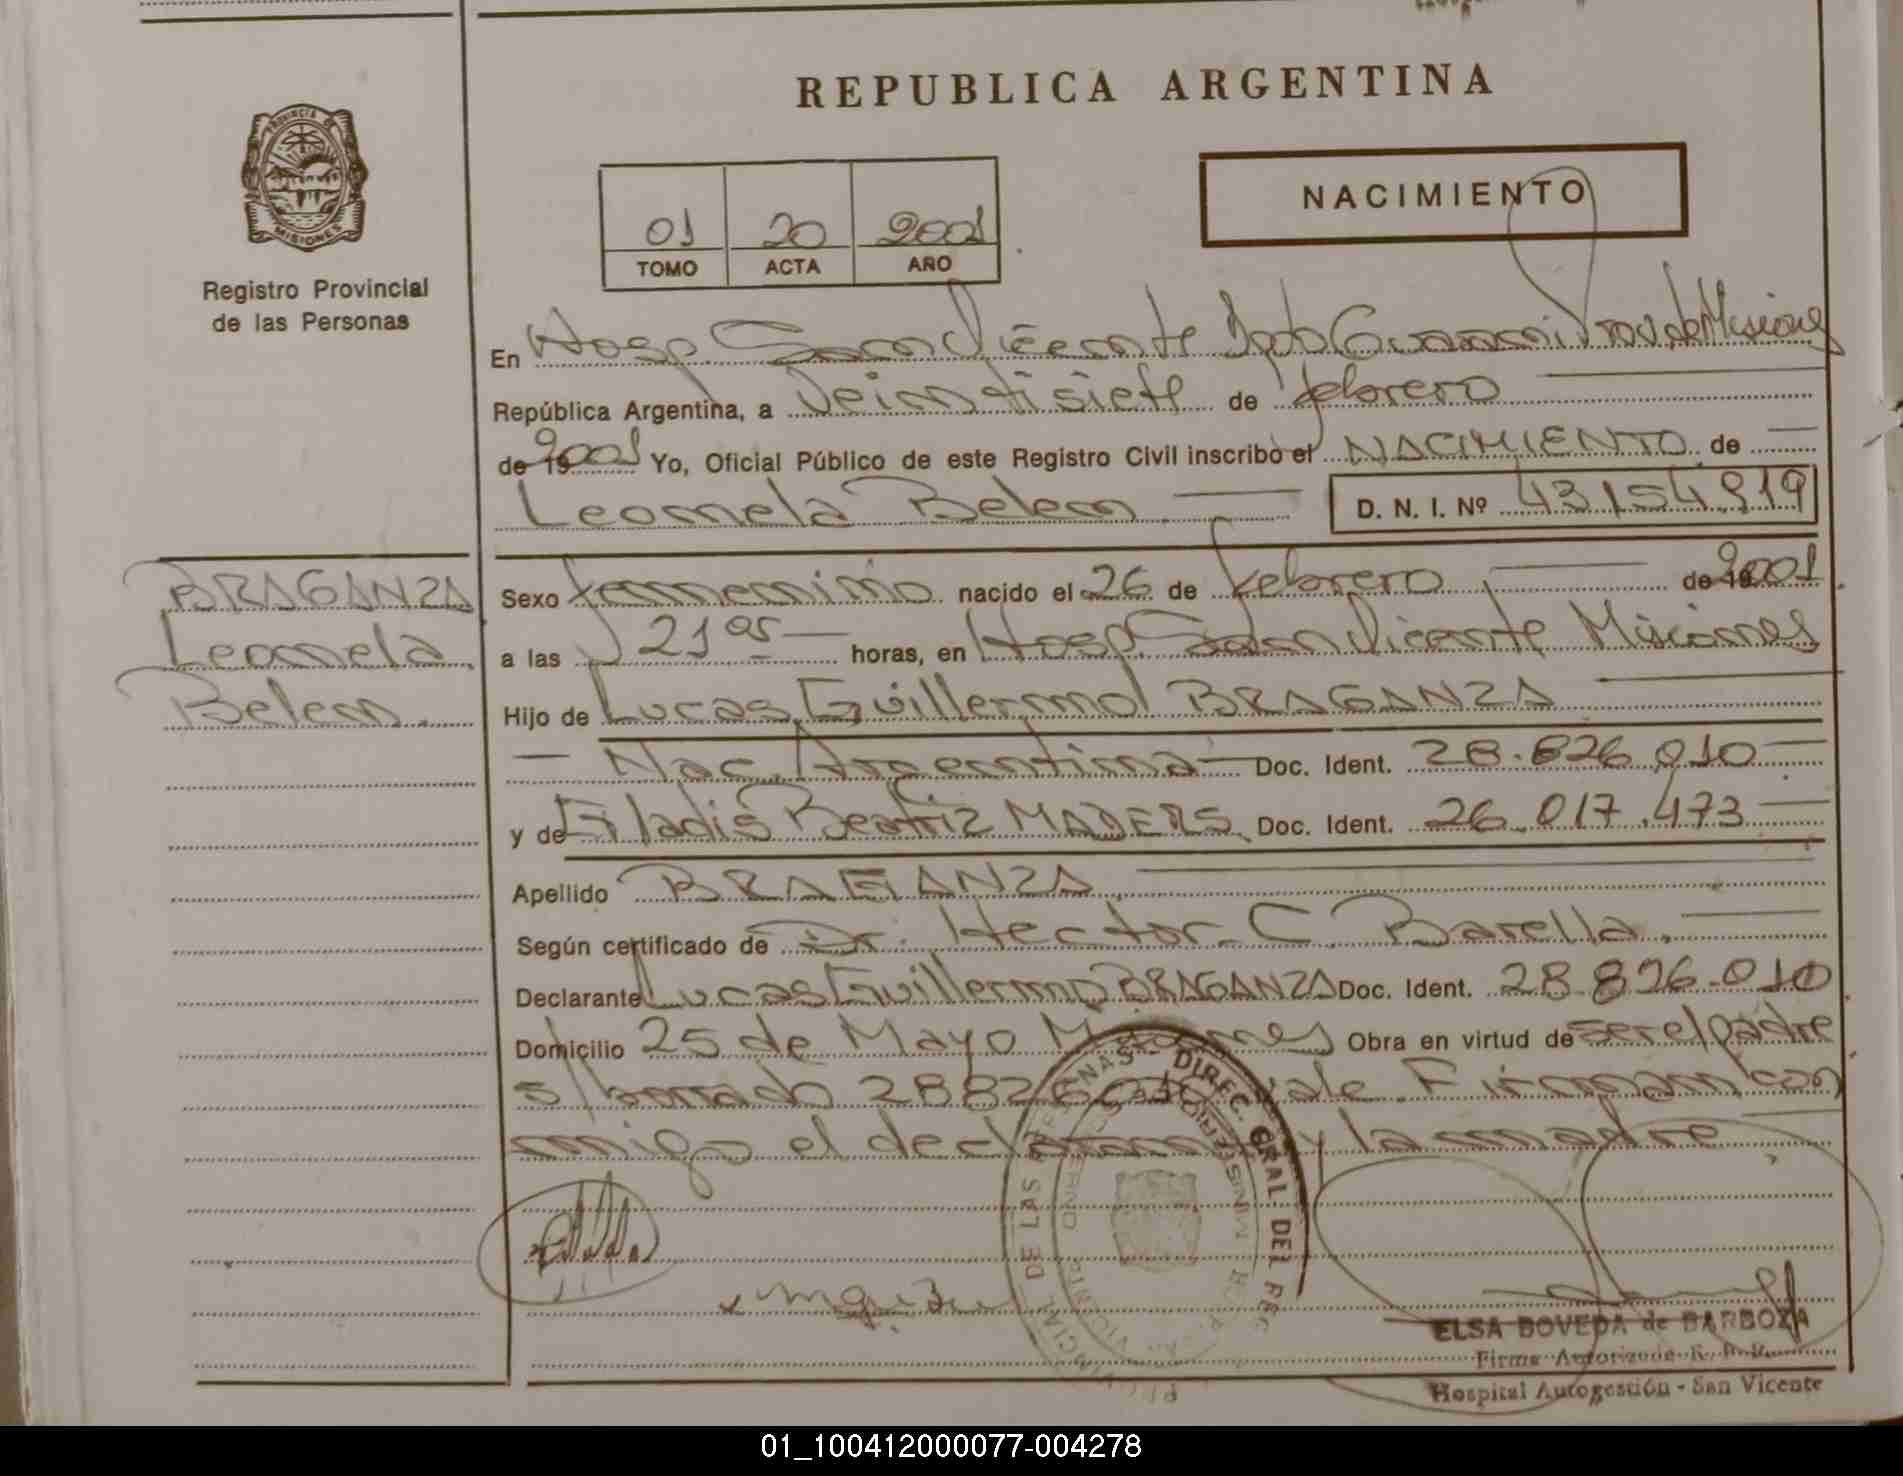 REPUBLICA ARGENTINA
PROVINCIA DE
MISIONES
Registro Provincial
de las Personas
01 20 2001
TOMO ACTA AÑO
NACIMIENTO
En Hosp. San Vicente Dpto Guarani Prov. de Misiones
República Argentina, a Veintisiete de febrero
de 19 2001 Yo, Oficial Público de este Registro Civil inscribo el NACIMIENTO de
Leonela Belen D. N. I. Nº 43.154.919
BRAGANZA
Leonela
Belen.
Sexo femenino nacido el 26 de febrero de 19 2001
a las 21 05 horas, en Hosp. San Vicente Misiones
Hijo de Lucas Guillermo BRAGANZA
Nac. Argentina Doc. Ident. 28.826.010
y de Gladis Beatriz MADERS Doc. Ident. 26.017.473
Apellido BRAGANZA
Según certificado de Dr. Hector C. Barella.
Declarante Lucas Guillermo BRAGANZA Doc. Ident. 28.826.010
Domicilio 25 de Mayo Misiones Obra en virtud de ser el padre
s/borrado 28826010 vale. Firman con
migo el declarante y la madre
PROVINCIAL DE LAS PERSONAS - DIREC. GRAL. DEL REG
ELSA BOVEDA de BARBOZA
Firma Autorizada R. P. P.
Hospital Autogestión - San Vicente
01_100412000077-004278